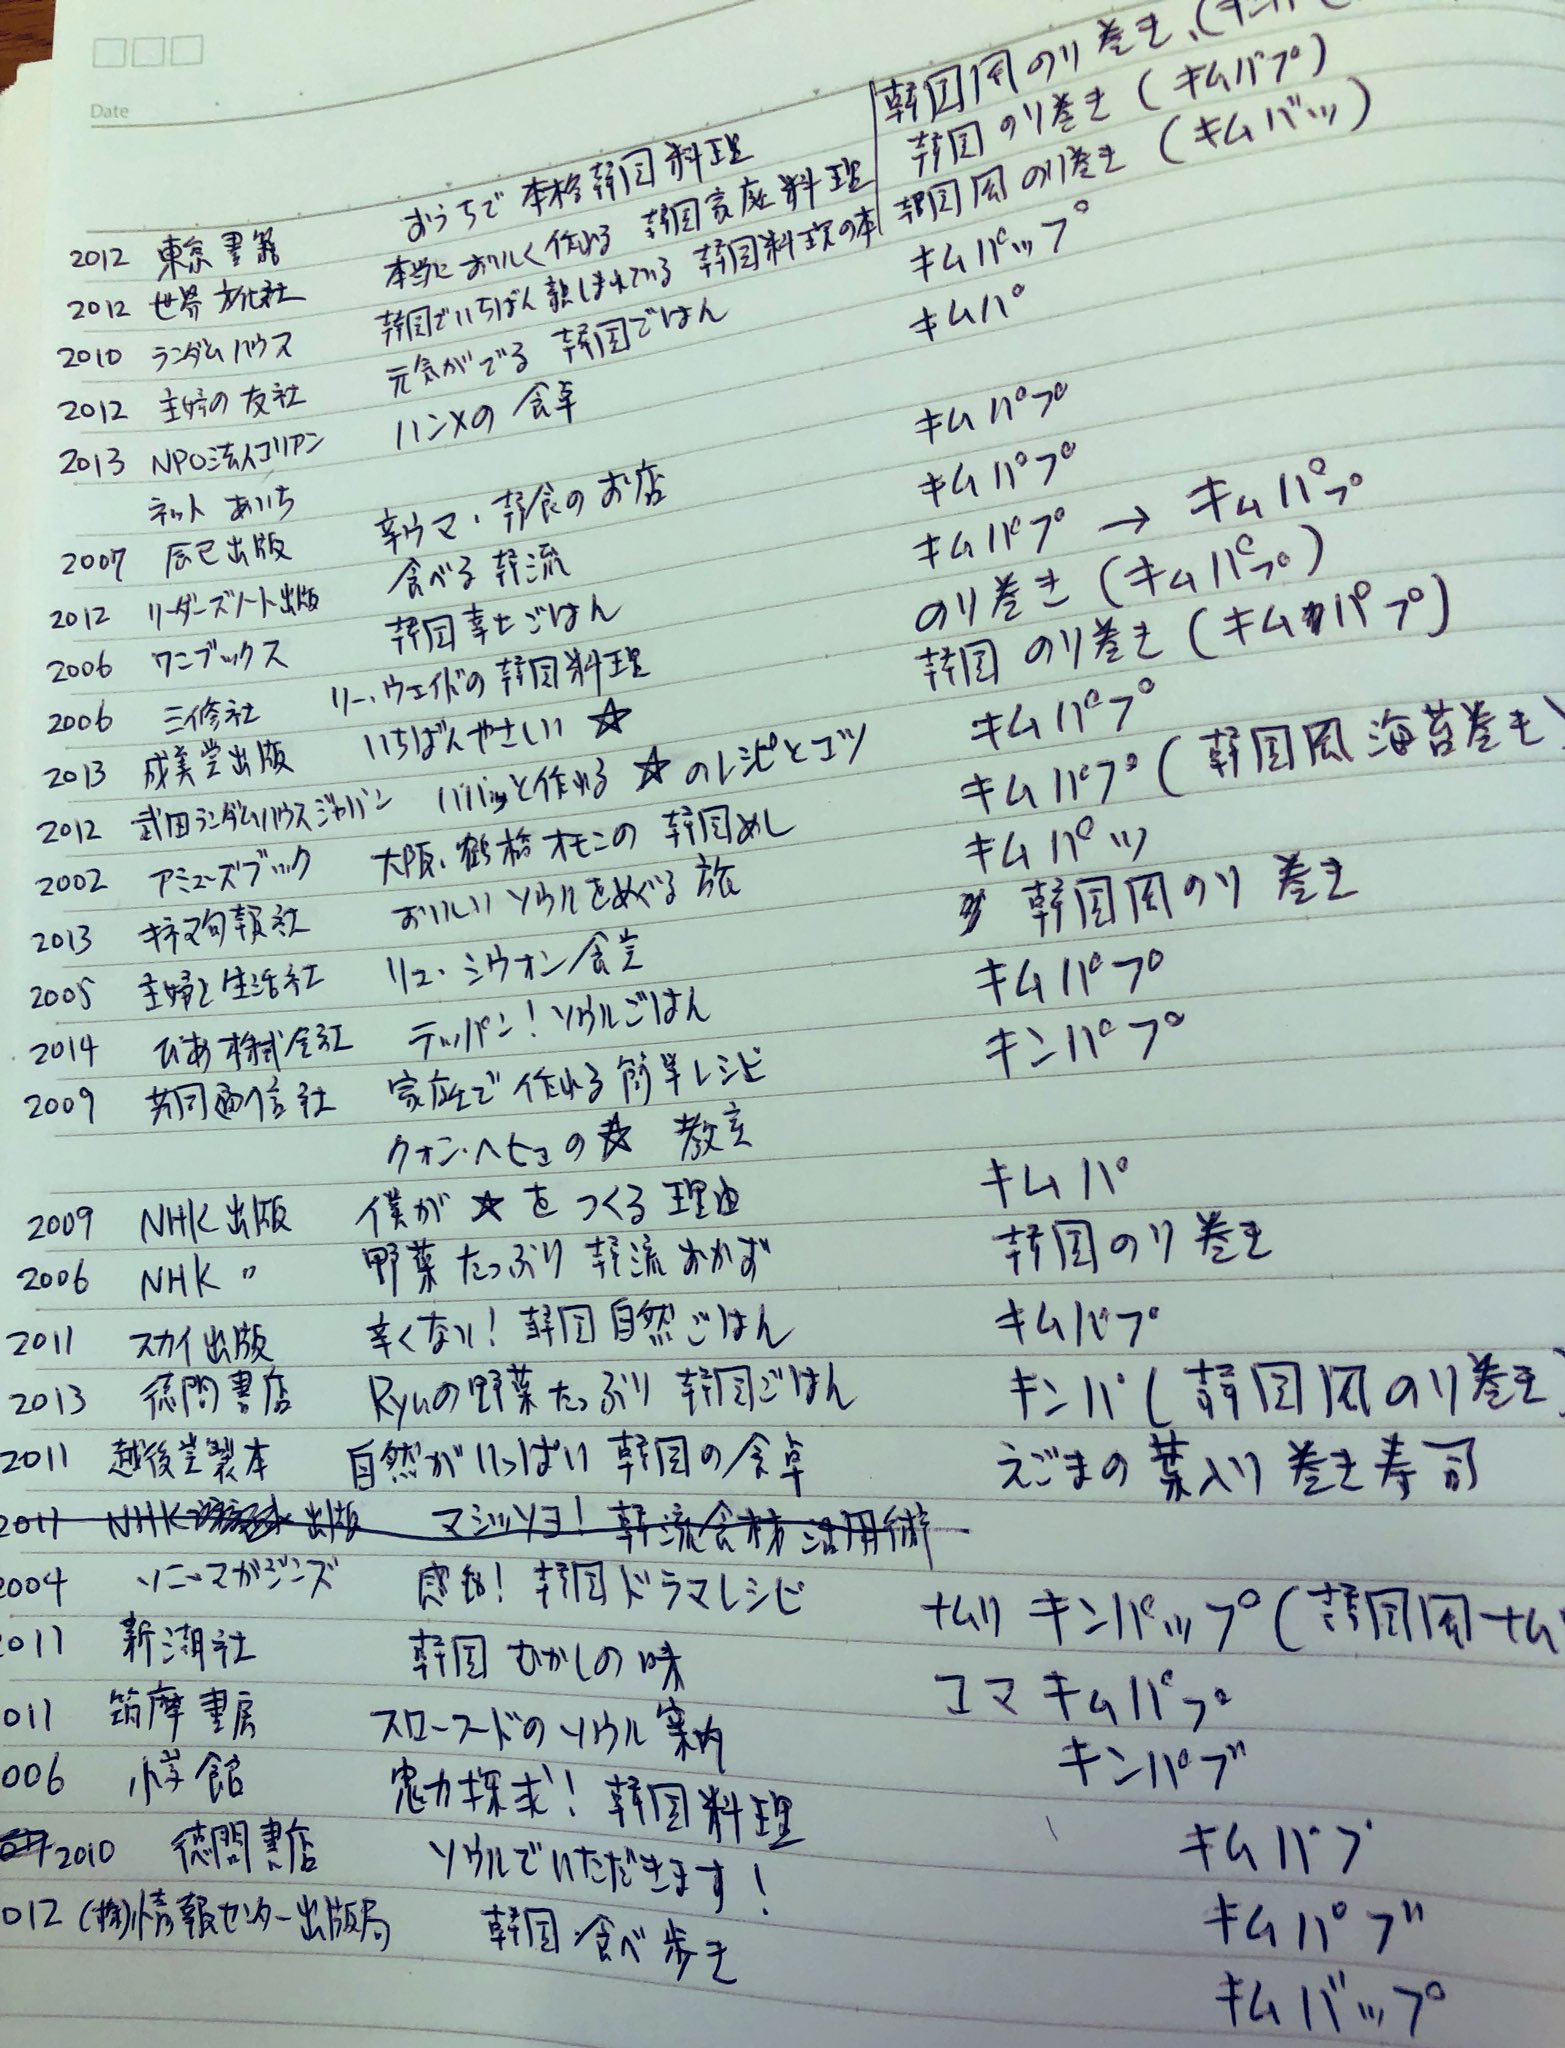 Date
2012 東京書籍 おうちで本格韓国料理 韓国風のり巻き、(キンパ
2012 世界文化社 本当においしく作れる 韓国家庭料理 韓国のり巻き(キムパプ)
2010 ランダムハウス 韓国でいちばん親しまれている 韓国料理の本 韓国風のり巻き(キムバッ)
2012 主婦の友社 元気がでる 韓国ごはん キムパップ
2013 NPO法人コリアン ハンメの食卓 キムパ
ネットあいち
2007 辰巳出版 辛ウマ・韓食のお店 キムパプ
2012 リーダーズノート出版 食べる韓流 キムパプ
2006 ワニブックス 韓国幸せごはん キムパプ → キムパプ
2006 三修社 リー・ウェイドの韓国料理 のり巻き(キムパプ)
2013 成美堂出版 いちばんやさしい ☆ 韓国のり巻き(キムパプ)
2012 武田ランダムハウスジャパン パパッと作れる ☆ のレシピとコツ キムパプ
2002 アミューズブック 大阪、鶴橋オモニの韓国めし キムパプ(韓国風海苔巻き)
2013 キネマ旬報社 おいしいソウルをめぐる旅 キムパッ
2005 主婦と生活社 リュ・シウォン食堂 韓国風のり巻き
2014 ぴあ株式会社 テッパン!ソウルごはん キムパプ
2009 共同通信社 家庭で作れる簡単レシピ キンパプ
クォン・ヘヒョの ☆ 教室
2009 NHK出版 僕が ☆ をつくる理由 キムパ
2006 NHK 〃 野菜たっぷり韓流おかず 韓国のり巻き
2011 スカイ出版 辛くない!韓国自然ごはん キムパプ
2013 徳間書店 Ryuの野菜たっぷり韓国ごはん キンパ(韓国風のり巻き)
2011 越後堂製本 自然がいっぱい韓国の食卓 えごまの葉入り巻き寿司
2011 NHK 出版 マシッソヨ!韓流食材活用術
2004 ソニーマガジンズ 感動!韓国ドラマレシピ ナムルキンパップ(韓国風ナム
011 新潮社 韓国むかしの味 コマキムパプ
011 筑摩書房 スローフードのソウル案内 キンパブ
006 小学館 魅力探求!韓国料理 キムパブ
2010 徳間書店 ソウルでいただきます! キムパブ
012 (株)情報センター出版局 韓国食べ歩き キムパップ